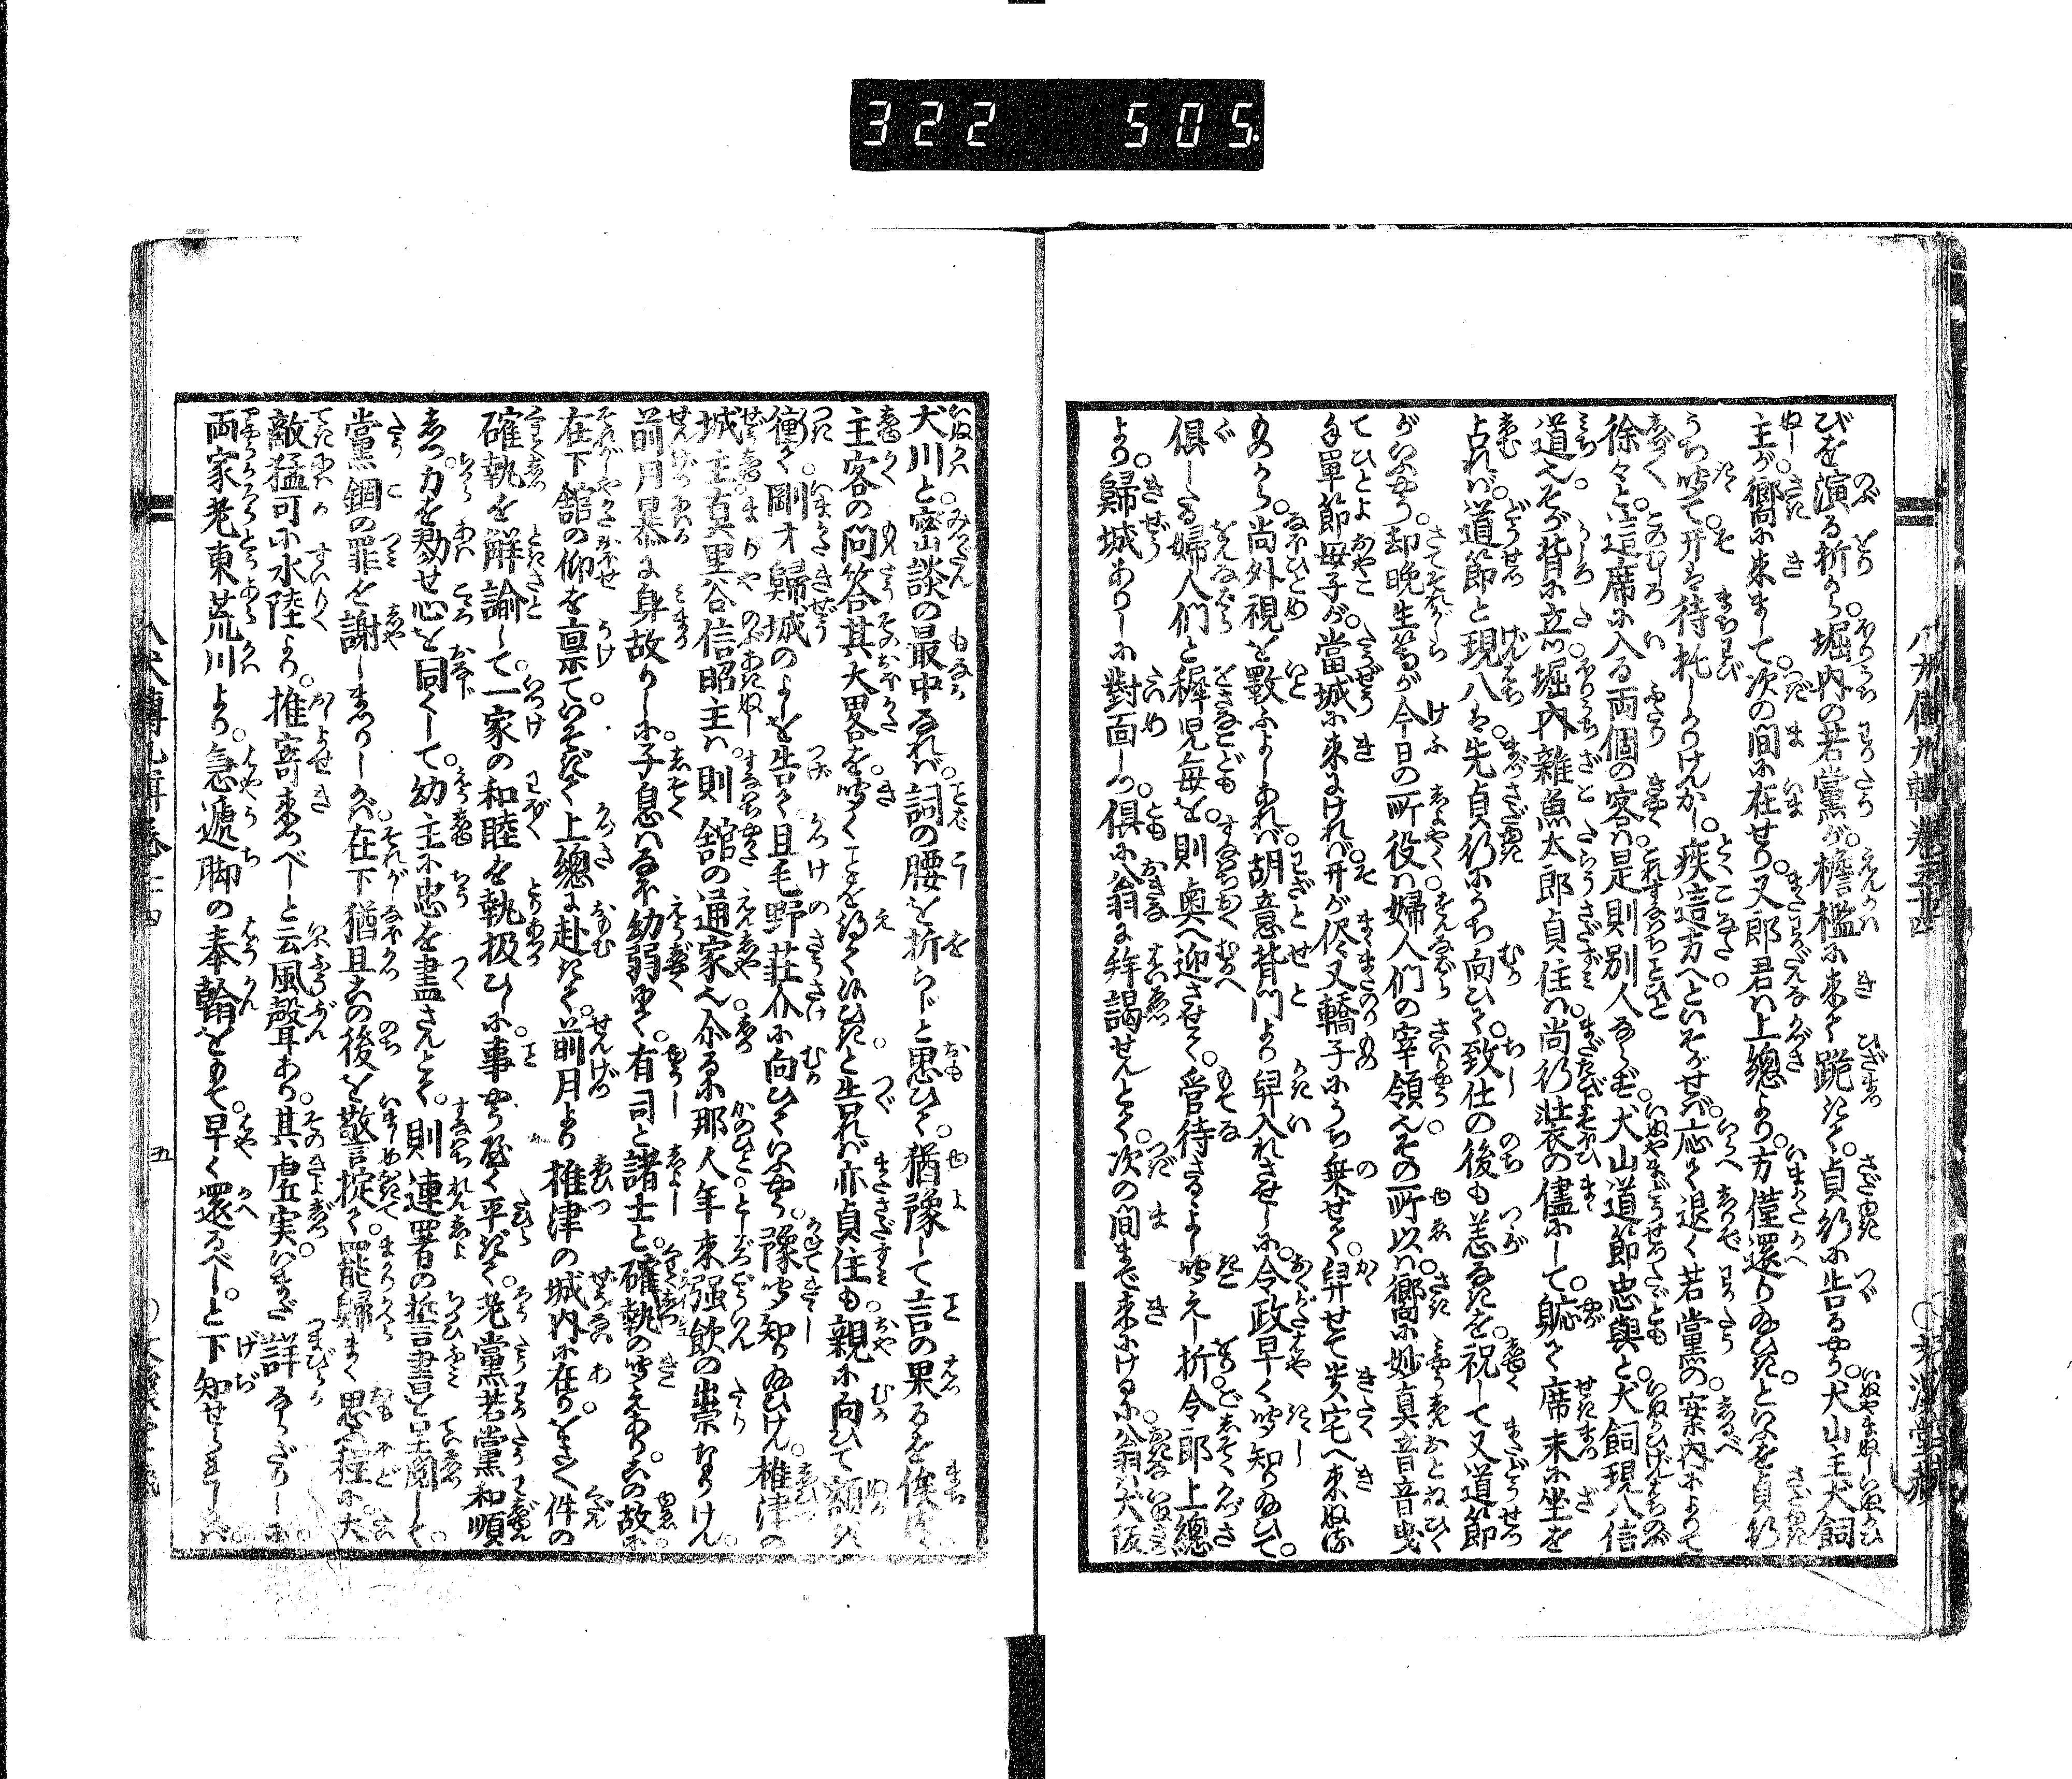 322 505
びを演る折から堀内の若黨が檐檻に来て跪きて貞行に告るやう犬山主犬飼
主が郷に来まして次の間に在せり又郎君は上總より方僅還り給ひきといふを貞行
うち听て开は待托しかりけんかし疾這方へといそがせば応て退く若黨の案内によりて
徐々と這席に入る両個の客は是則別人ならず犬山道節忠與と犬飼現八信
道也そが背に立つ堀内雜魚太郎貞住は尚行装の儘にして躬て席末に坐を
占れば道節と現八は先貞行にうち向ひて致仕の後も恙なきを祝して又道節
がいふやう却晩生等が今日の所役は婦人們の宰領也その所以は郷に妙真音音曳
手單節母子が當城に来にければ开が侭又轎子にうち乗せて舁せて貴宅へ来ぬる
ものから尚外視を數ふよしあれば胡意背門より舁入れさせしに令政早く听知り給ひて
倶したる婦人們と穉児毎を則奥へ迎させて管待さるるよし听えし折令郎上總
より歸城ありしに對面しつ倶に翁に拜謁せんとて次の間まで来にけるに翁は犬阪
犬川と密談の最中なれば詞の腰を折らじと思ひて猶豫して言の果るを俟程
主客の問答其大畧を听くことを得て候ひきと告れば亦貞住も親に向ひて額を
衝て剛才歸城のよしを告て且毛野荘介に向ひていふやう豫听知り給ひけん椎津の
城主真里谷信昭主は則舘の通家也介るに那人年来强飲の祟なりけん
前月暴に身故りしに子息はなほ幼弱にて有司と諸士と確執の听えありこの故に
在下舘の仰を稟ていそぎて上總に赴きて前月より椎津の城内に在りをさをさ件の
確執を解諭して一家の和睦を執扱ひしに事やうやく平ぎて老黨若黨和順
しつ力を勠せ心を同くして幼主に忠を盡さんとて則連署の誓書を呈閲して
黨錮の罪を謝しまつりしかば在下猶且この後を敬言掟て罷歸らまく思ふ程に大
敵猛可に水陸より推寄来つべしと云風聲あり其虚実いまだ詳ならざりしに
両家老東荒川より急遞脚の奉翰をもて早く還るべしと下知せられしかば
八犬傳九輯巻三十四
五